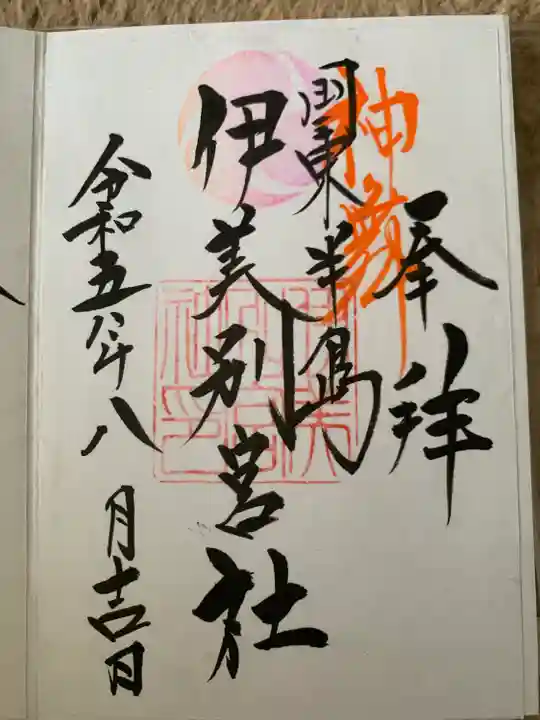 奉拝
神舞
国東半島
伊美別宮社
令和五年八月吉日